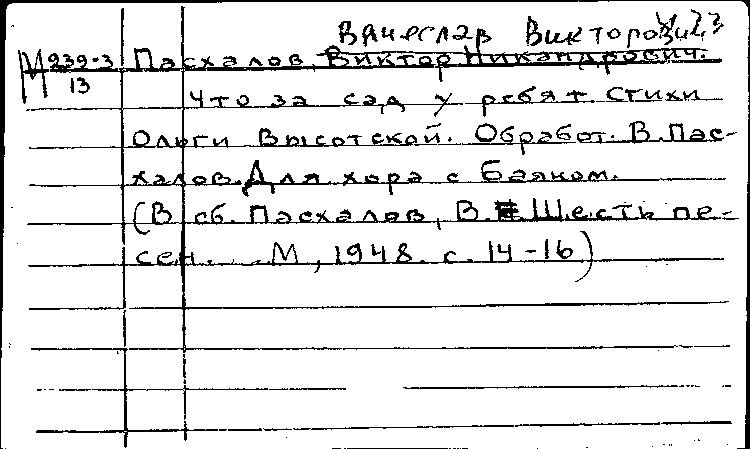 Вячеслав Викторович
М 939-3 Пасхалов, Виктор Никандрович.
13
Что за сад у ребят. Стихи
Ольги Высотской. Обработ. В. Пас-
халов. Для хора с баяном.
(В сб. Пасхалов, В. Шесть пе-
сен. М, 1948. с. 14-16)